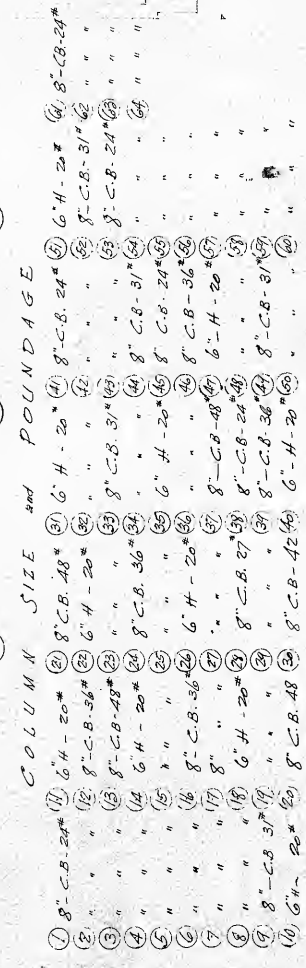 COLUMN SIZE and POUNDAGE
1 8"-C.B-24# 11 6"H-20# 21 8"C.B. 48# 31 6"H-20# 41 8"-C.B. 24# 51 6"H-20# 61 8"-CB-24#
2 " " " 12 8"-C.B-36# 22 6"H-20# 32 " " " 42 " " " 52 8"-C.B.-31# 62 " " "
3 " " " 13 8"-C.B-48# 23 " " " 33 8"C.B. 31# 43 " " " 53 8"-C.B-24# 63 " " "
4 " " " 14 6"H-20# 24 8"C.B. 36# 34 " " " 44 8" C.B-31# 54 " " " 64 " " "
5 " " " 15 " " " 25 " " " 35 6" H-20# 45 8" C.B. 24# 55 " " "
6 " " " 16 8"-C.B. 36# 26 6"H-20# 36 " " " 46 8"C.B-36# 56 " " "
7 " " " 17 8" 27 " " " 37 8"-C.B-48# 47 6"-H-20# 57 " " "
8 " " " 18 6"H-20# 28 8"C.B. 27# 38 8"-C.B-24# 48 " " " 58 " " "
9 8"-C.B 31# 19 " " " 29 " " " 39 8"-C.B-36# 49 8"-C.B-31# 59 " "
10 6"H-20# 20 8"C.B. 48 30 8"C.B-42 40 6"-H-20# 50 " " " 60 " " "